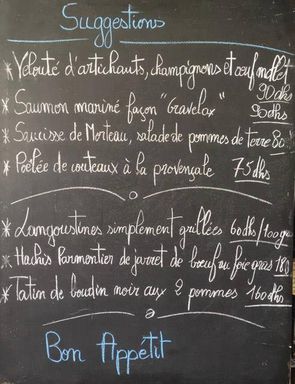 Suggestions
* Velouté d'artichauts, champignons et oeuf mollet
90 dhs
* Saumon mariné façon "Gravelax" 90 dhs
* Saucisse de Morteau, salade de pommes de terre 80
* Poêlée de couteaux à la provençale 75 dhs
* Langoustines simplement grillées 60 dhs/100 gr
* Hachis Parmentier de jarret de boeuf au foie gras 180
* Tatin de boudin noir aux 2 pommes 160 dhs
Bon Appétit